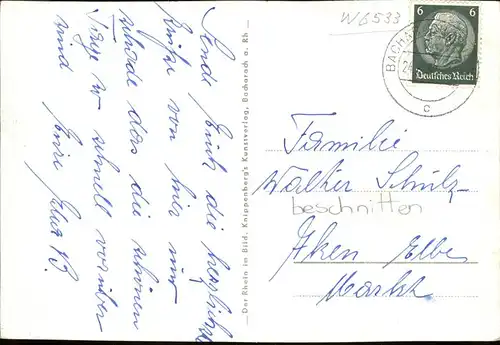 W6533
6 6
Deutsches Reich
BACHA
24
c
Sende Euch die herzlichsten
Grüße von hier nur
schade das die schönen
Tage so schnell vorüber
sind Eure
Der Rhein im Bild. Knippenberg's Kunstverlag, Bacharach a. Rh.
Familie
Walter Schulz
beschnitten
Aken Elbe
Markt